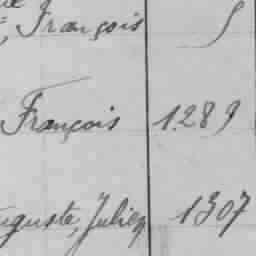 François
François 1289
Auguste, Julien 1307